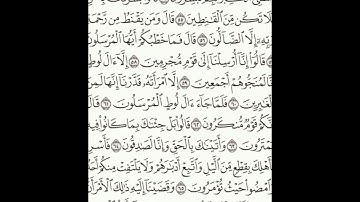 تَكُن مِّنَ ٱلْقَٰنِطِينَ ٥٥ قَالَ وَمَن يَقْنَطُ مِن رَّحْمَةِ
رَبِّهِۦٓ إِلَّا ٱلضَّآلُّونَ ٥٦ قَالَ فَمَا خَطْبُكُمْ أَيُّهَا ٱلْمُرْسَلُونَ
٥٧ قَالُوٓا۟ إِنَّآ أُرْسِلْنَآ إِلَىٰ قَوْمٍ مُّجْرِمِينَ ٥٨ إِلَّآ ءَالَ لُوطٍ
إِنَّا لَمُنَجُّوهُمْ أَجْمَعِينَ ٥٩ إِلَّا ٱمْرَأَتَهُۥ قَدَّرْنَآ إِنَّهَا لَمِنَ
ٱلْغَٰبِرِينَ ٦٠ فَلَمَّا جَآءَ ءَالَ لُوطٍ ٱلْمُرْسَلُونَ ٦١
إِنَّكُمْ قَوْمٌ مُّنكَرُونَ ٦٢ قَالُوا۟ بَلْ جِئْنَٰكَ بِمَا كَانُوا۟ فِيهِ
يَمْتَرُونَ ٦٣ وَأَتَيْنَٰكَ بِٱلْحَقِّ وَإِنَّا لَصَٰدِقُونَ ٦٤
بِأَهْلِكَ بِقِطْعٍ مِّنَ ٱلَّيْلِ وَٱتَّبِعْ أَدْبَٰرَهُمْ وَلَا يَلْتَفِتْ مِنكُمْ أَحَدٌ
وَٱمْضُوا۟ حَيْثُ تُؤْمَرُونَ ٦٥ وَقَضَيْنَآ إِلَيْهِ ذَٰلِكَ ٱلْأَمْرَ أَنَّ